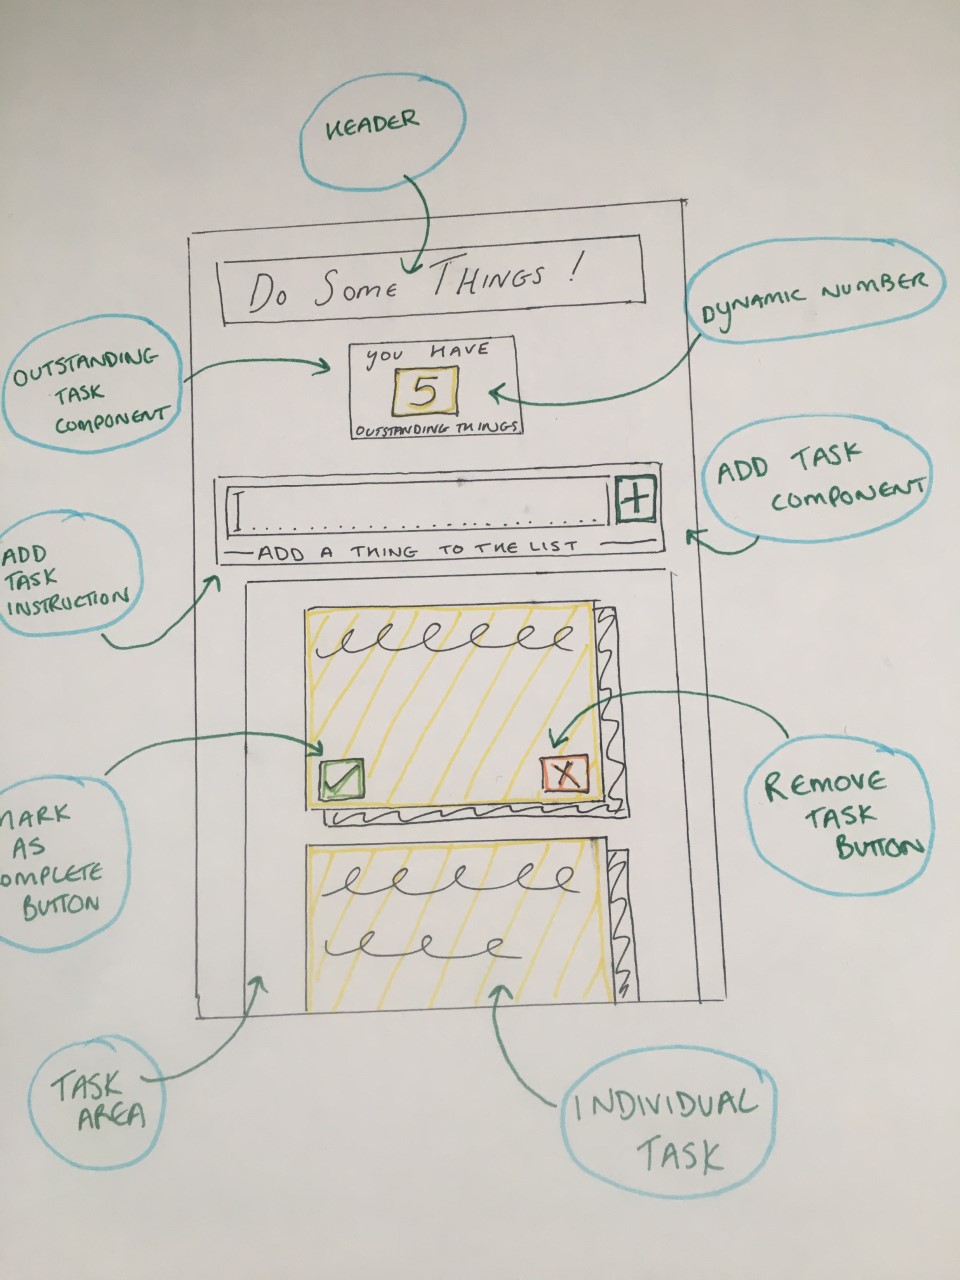 HEADER
DO SOME THINGS!
DYNAMIC NUMBER
OUTSTANDING
TASK
COMPONENT
YOU HAVE
5
OUTSTANDING THINGS
ADD TASK
COMPONENT
+
ADD A THING TO THE LIST
ADD
TASK
INSTRUCTION
X
REMOVE
TASK
BUTTON
MARK
AS
OMPLETE
BUTTON
TASK
AREA
INDIVIDUAL
TASK